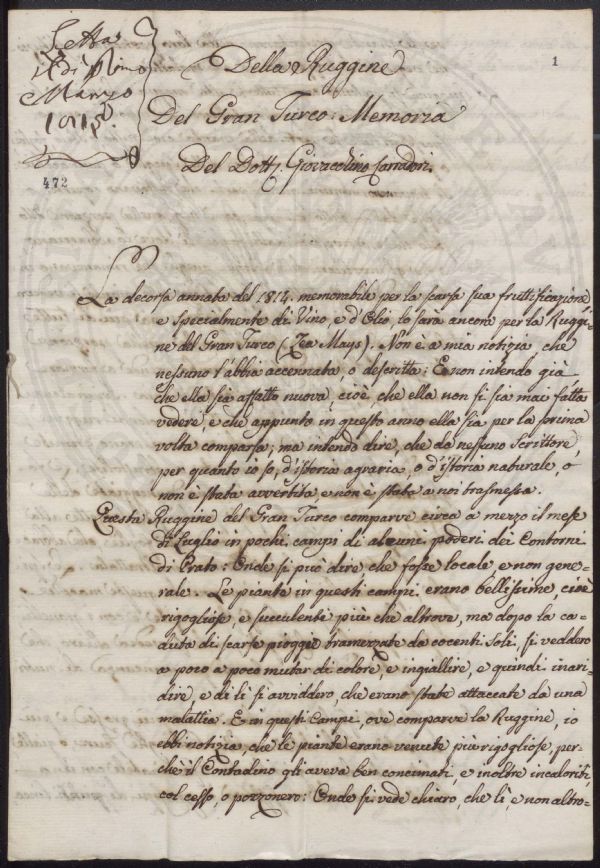 Letta
il dì Primo
Marzo
1815.
472
1
Della Ruggine
Del Gran Turco: Memoria
Del Dott. Giovacchino Carradori.
La decorsa annata del 1814. memorabile per la scarsa sua fruttificazione,
e specialmente di Vino, e d'Olio, lo sarà ancora per la Ruggi=
ne del Gran Turco (Zea Mays). Non è a mia notizia che
nessuno l'abbia accennata, o descritta: E non intendo già
che ella sia affatto nuova, cioè, che ella non si sia mai fatta
vedere, e che appunto in questo anno ella sia per la prima
volta comparsa; ma intendo dire, che da nessuno Scrittore,
per quanto io so, d'istoria agraria, o d'istoria naturale, o
non è stata avvertita, e non è stata a noi trasmessa.
Questa Ruggine del Gran Turco comparve circa a mezzo il mese
di Luglio in pochi campi di alcuni poderi dei Contorni
di Prato: Onde si può dire che fosse locale, e non gene=
rale. Le piante in questi campi erano bellissime, cioè
rigogliose, e succulenti più che altrove, ma dopo la ca=
duta di scarse pioggie tramezzate da cocenti Soli, si veddero
a poco a poco mutar di colore, e ingiallire, e quindi inari=
dire, e di lì si avviddero, che erano state attaccate da una
malattia. E in questi Campi, ove comparve la Ruggine, io
ebbi notizia, che le piante erano venute più rigogliose, per=
chè il Contadino gli aveva ben concimati, e inoltre incaloriti,
col cesso, o pozzonero: Onde si vede chiaro, che lì, e non altro=